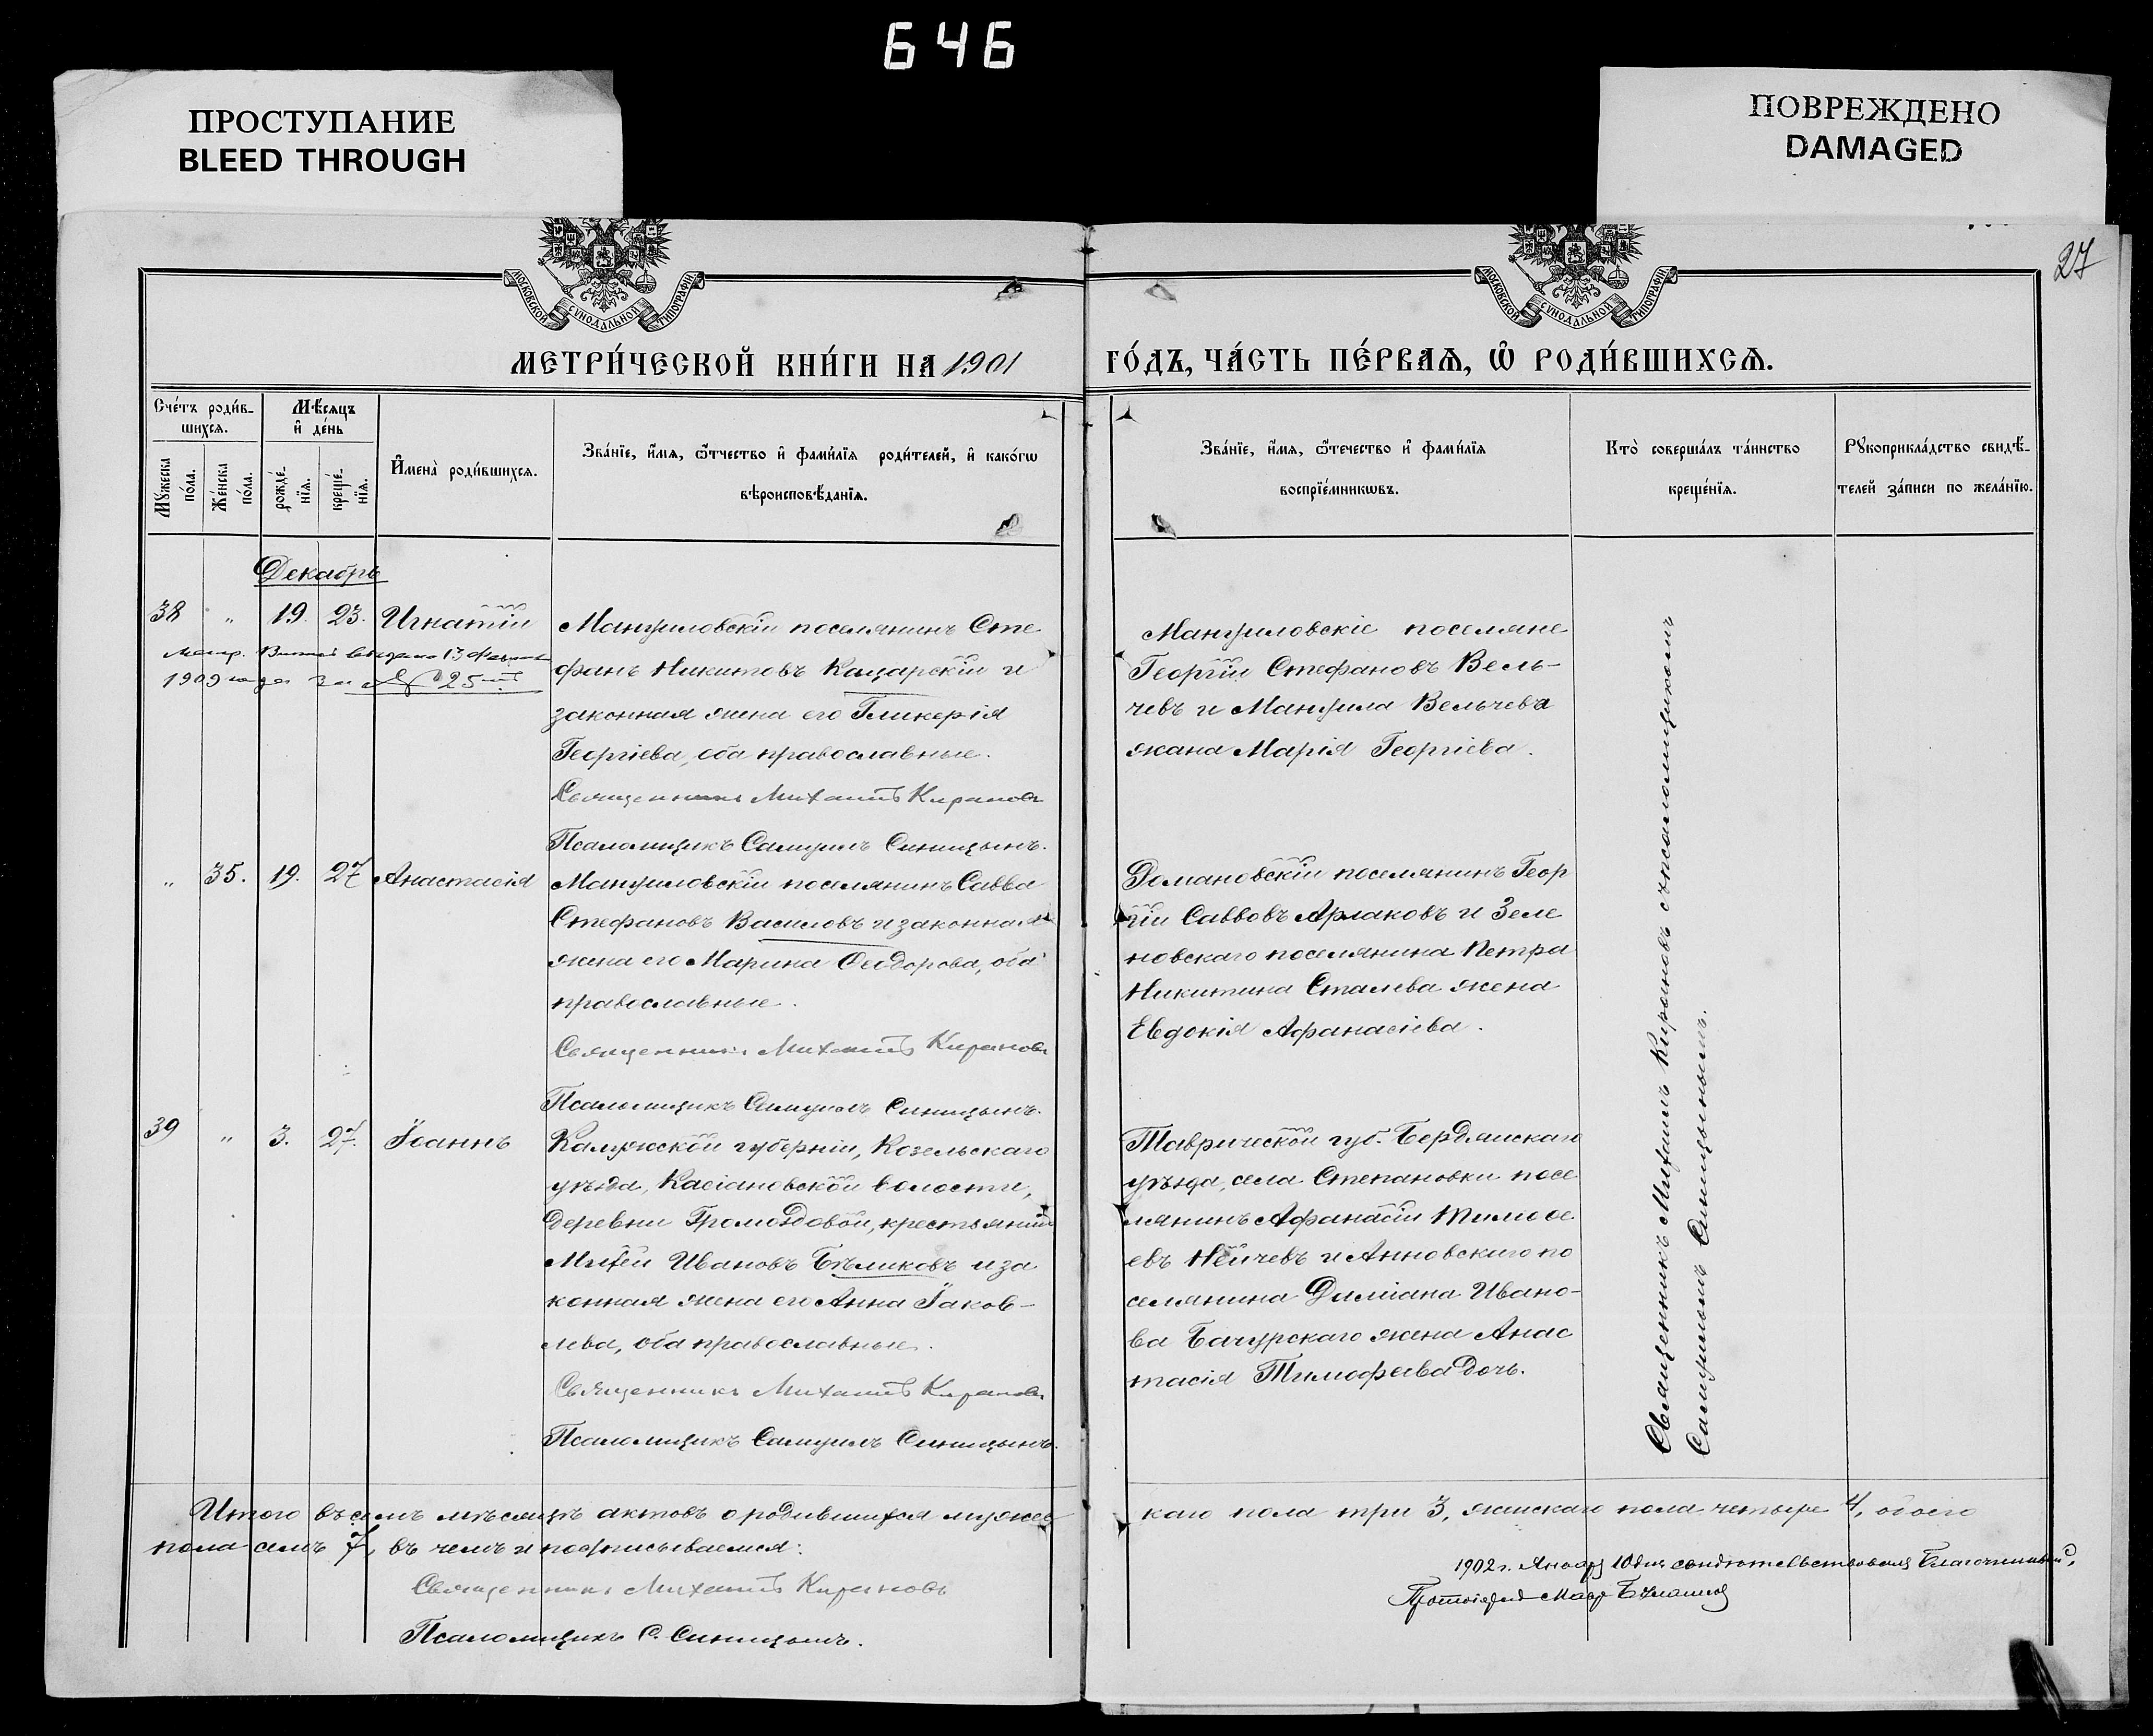 646
ПРОСТУПАНИЕ
BLEED THROUGH
ПОВРЕЖДЕНО
DAMAGED
27
МОСКОВСКОЙ СУНОДАЛЬНОЙ ТИПОГРАФІИ
МОСКОВСКОЙ СУНОДАЛЬНОЙ ТИПОГРАФІИ
МЕТРИ́ЧЕСКОЙ КНИ́ГИ НА 1901
ГО́ДЪ, ЧА́СТЬ ПЕ́РВАѦ, Ѡ РОДИ́ВШИХСѦ.
Сче́тъ роди́в-
шихсѧ.
Мѣ́сѧцъ
и де́нь
Мꙋ́жеска
по́ла.
Же́нска
по́ла.
рожде́-
нїѧ.
креще́-
нїѧ.
Имена̀ роди́вшихсѧ.
Зва́нїе, и́мѧ, ѻ́тчество и фами́лїѧ роди́телей, и како́гѡ
вѣроисповѣ́данїѧ.
Зва́нїе, и́мѧ, ѻ́течество и фами́лїѧ
воспрїе́мникѡвъ.
Кто̀ соверша́лъ та́инство
креще́нїѧ.
Рꙋкоприкла́дство свидѣ́-
телей за́писи по жела́нїю.
Декабрь
38 " 19. 23. Игнатій
Мануиловскій поселянинъ Сте
фанъ Никитовъ Кацарскій и
законная жена его Гликерія
Георгіева, оба православные.
Священникъ Михаилъ Кирановъ
Псаломщикъ Самуилъ Синицынъ.
Мануиловскіе поселяне
Георгій Стефановъ Вель-
чевъ и Мануила Вельчева
жана Марія Георгіева.
1909 года за № 25
" 35. 19. 27 Анастасія
Мануиловскій поселянинъ Савва
Стефановъ Василовъ и законная
жена его Марина Ѳеодорова, оба
православные.
Священникъ Михаилъ Кирановъ
Псаломщикъ Самуилъ Синицынъ.
Романовскій поселянинъ Геор
гій Саввовъ Арлаковъ и Зеле
новскаго поселянина Петра
Никитина Сталева жена
Евдокія Афанасіева.
39 " 3. 27. Іоаннъ
Калужской губерніи, Козельскаго
уѣзда, Касіановской волости,
деревни Громоздовой, крестьянинъ
Михей Ивановъ Бѣликовъ и за
конная жена его Анна Іаков-
лева, оба православные.
Священникъ Михаилъ Кирановъ
Псаломщикъ Самуилъ Синицынъ.
Таврической губ. Бердянскаго
уѣзда, села Степановки посе
лянинъ Афанасій Тимоѳе
евъ Нейчевъ и Анновскаго по
селянина Даміана Ивано-
ва Бачурскаго жена Анас
тасія Тимофеева дочь.
Священникъ Михаилъ Кирановъ съ псаломщикомъ
Самуиломъ Синицынымъ.
Итого въ семъ мѣсяцѣ актовъ о родившихся мужес
каго пола три 3, женскаго пола четыре 4, обоего
пола семь 7, въ чемъ и подписываемся:
Священникъ Михаилъ Кирановъ
Псаломщикъ С. Синицынъ.
1902 г. Января 10 дня свидѣтельствовалъ Благочинный,